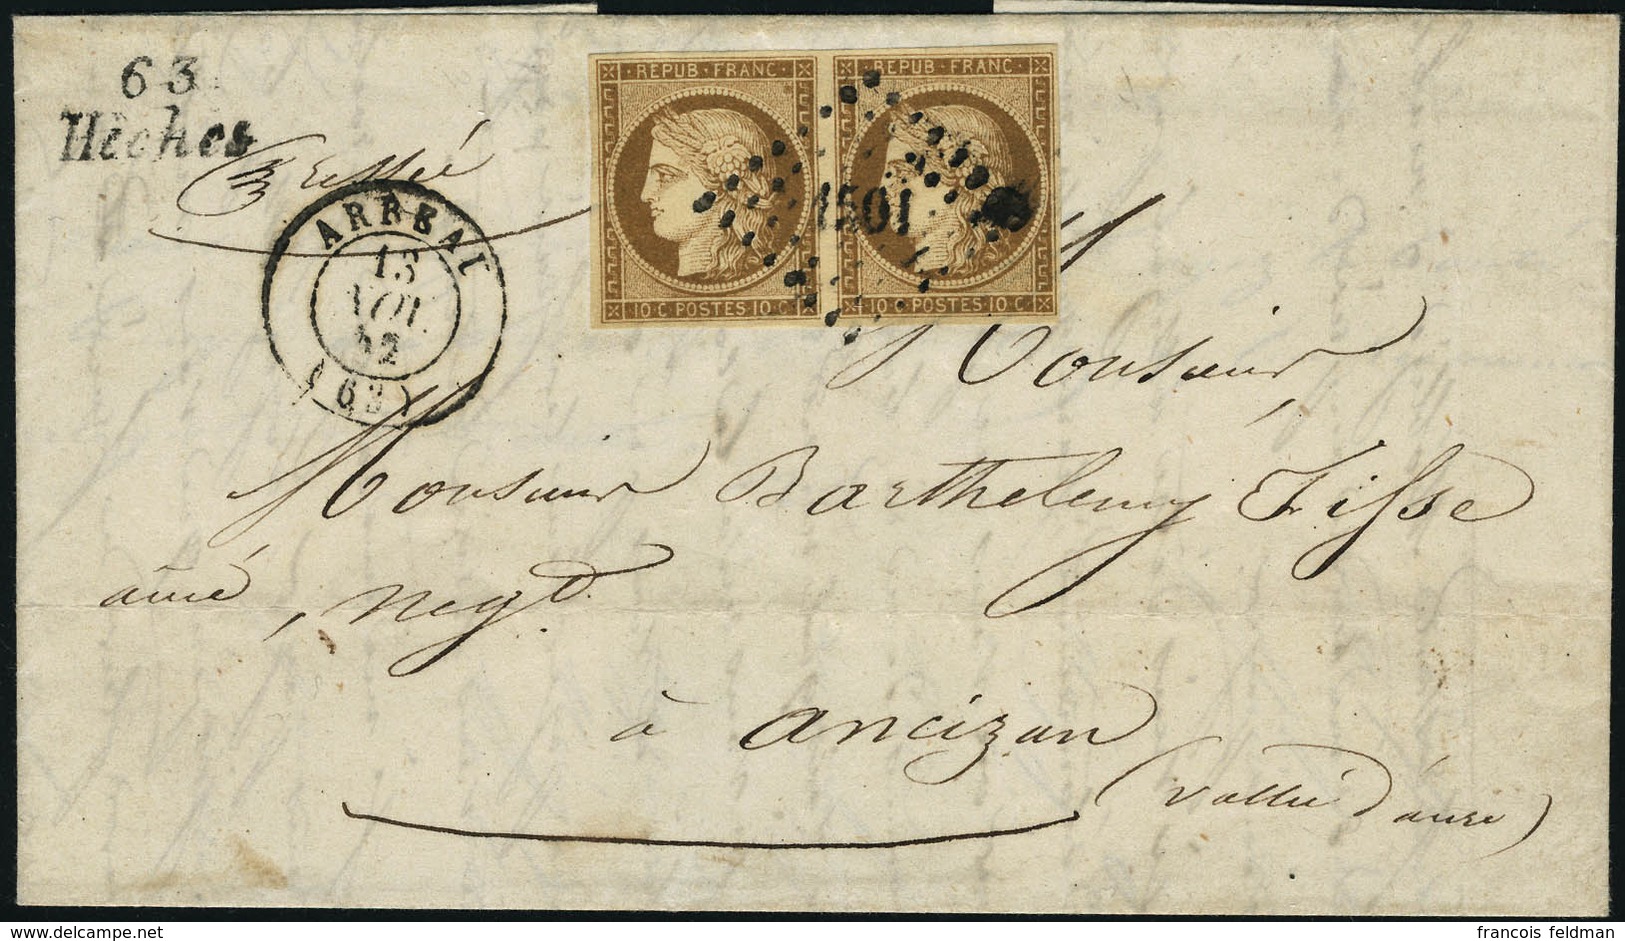 63
Hèches
Pressée
REPUB·FRANC· REPUB·FRANC·
1501
10 C·POSTES·10 C· 10 C·POSTES·10 C·
ARREAU
13
NOV.
52
(63)
Monsieur,
Monsieur Barthelemy Fisse
ainé, negt.
à ancizan
(vallée d'aure)
delcampe.net
francois feldman